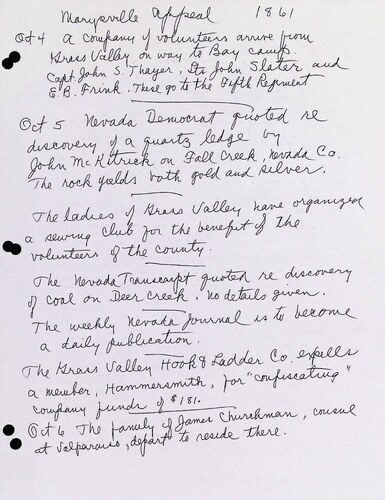 Marysville Appeal 1861
Oct 4 A company of volunteers arrive from
Grass Valley on way to Bay camp.
Capt. John S. Thayer, Lts John Slater and
E. B. Frink. These go to the Fifth Regiment
Oct 5 Nevada Democrat quoted re
discovery of a quartz ledge by
John McKitrick on Fall Creek, Nevada Co.
The rock yields both gold and silver.
The ladies of Grass Valley have organized
a sewing club for the benefit of the
volunteers of the county.
The Nevada Transcript quoted re discovery
of coal on Deer Creek. No details given.
The weekly Nevada Journal is to become
a daily publication.
The Grass Valley Hook & Ladder Co. expells
a member, Hammersmith, for "confiscating"
company funds of $181.
Oct 6 The family of James Churchman, consul
at Valparaiso, depart to reside there.